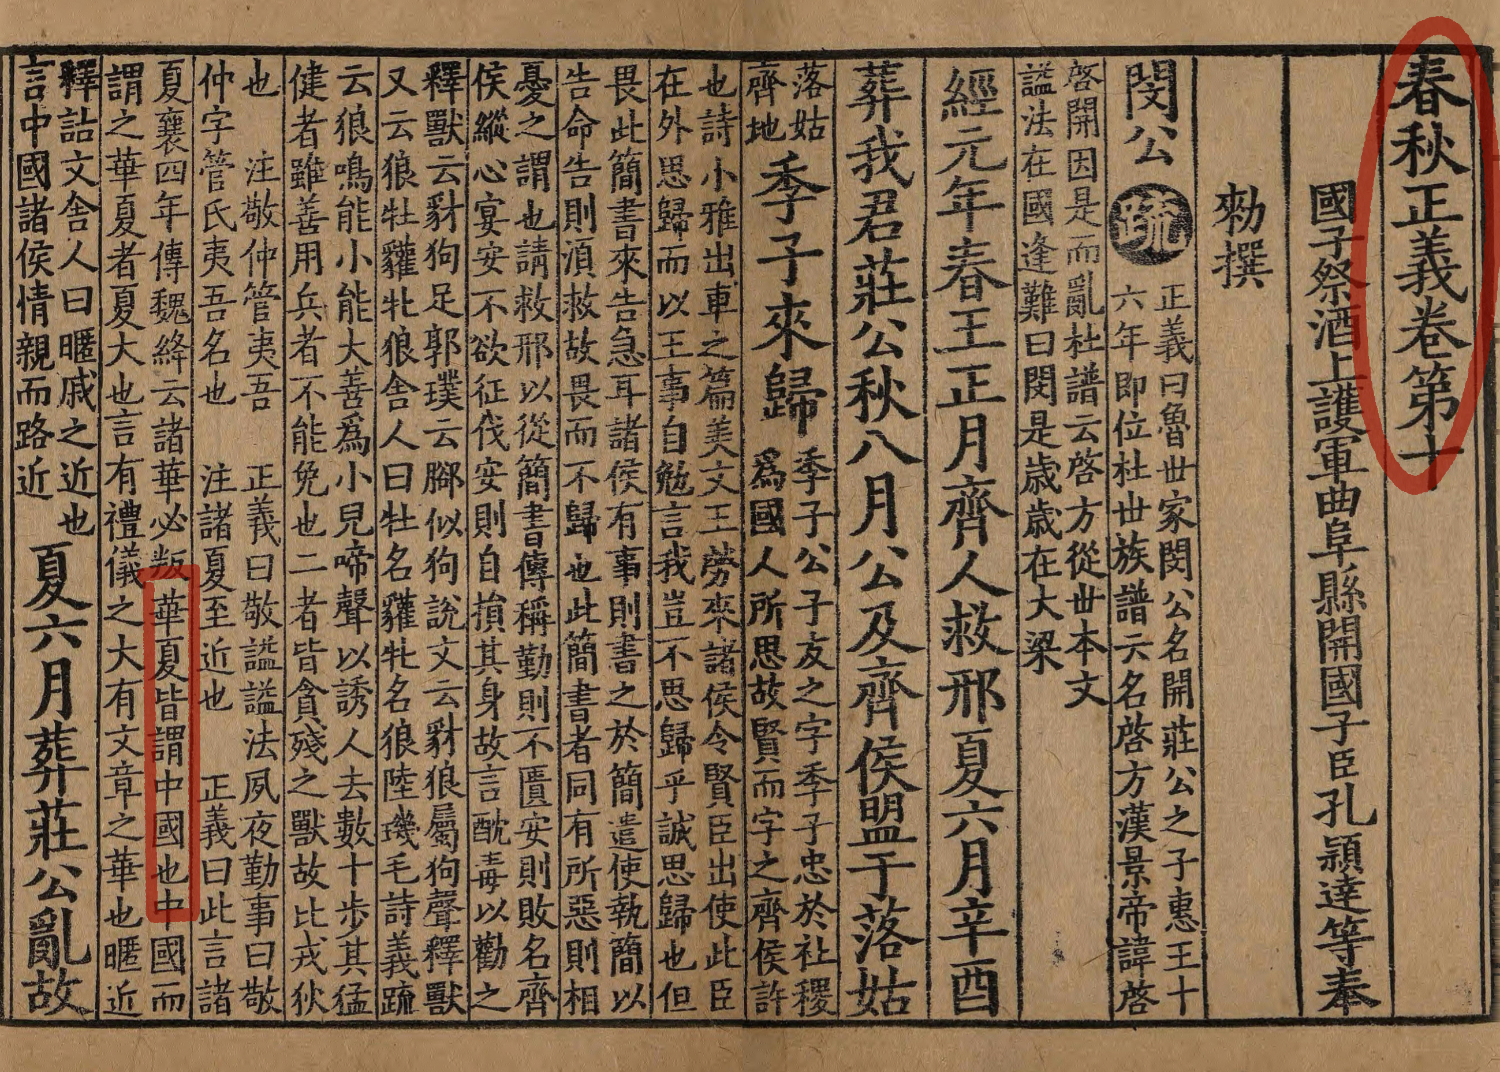 春秋正義卷第十
國子祭酒上護軍曲阜縣開國子臣孔穎達等奉
勑撰
閔公
疏
正義曰魯世家閔公名開莊公之子惠王十
六年即位杜世族譜云名啓方漢景帝諱啓
啓開因是而亂杜譜云啓方從世本文
謚法在國逢難曰閔是歳歳在大梁
經元年春王正月齊人救邢夏六月辛酉
葬我君莊公秋八月公及齊侯盟于落姑
落姑
齊地
季子來歸
季子公子友之字季子忠於社稷
爲國人所思故賢而字之齊侯許
也詩小雅出車之篇美文王勞來諸侯令賢臣出使此臣
在外思歸而以王事自勉言我豈不思歸乎誠思歸也但
畏此簡書來告急耳諸侯有事則書之於簡遣使執簡以
告命告則湏救故畏而不歸也此簡書者同有所惡則相
憂之謂也請救邢以從簡書傳稱勤則不匱安則敗名齊
侯縱心宴安不欲征伐安則自損其身故言酖毒以勸之
釋獸云豺狗足郭璞云脚似狗說文云豺狼屬狗聲釋獸
又云狼牡貛牝狼舍人曰牡名貛牝名狼陸璣毛詩義疏
云狼鳴能小能大善爲小兒啼聲以誘人去數十步其猛
健者雖善用兵者不能免也二者皆貪殘之獸故比戎狄
也　注敬仲管夷吾　正義曰敬謚謚法夙夜勤事曰敬
仲字管氏夷吾名也　注諸夏至近也　正義曰此言諸
夏襄四年傳魏絳云諸華必叛華夏皆謂中國也中國而
謂之華夏者夏大也言有禮儀之大有文章之華也暱近
釋詁文舍人曰暱戚之近也
言中國諸侯情親而路近
夏六月葬莊公亂故